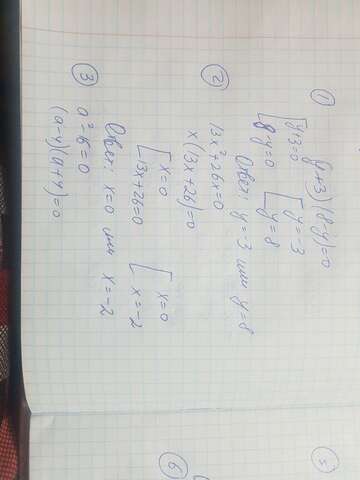 ①
(y+3)(8-y)=0
[y+3=0 [y=-3
[8-y=0 [y=8
Ответ: y=3 или y=8
②
13x²+26x=0
x(13x+26)=0
[x=0 [x=0
[13x+26=0 [x=-2
Ответ: x=0 или x=-2
③
a²-16=0
(a-4)(a+4)=0
5
⑥